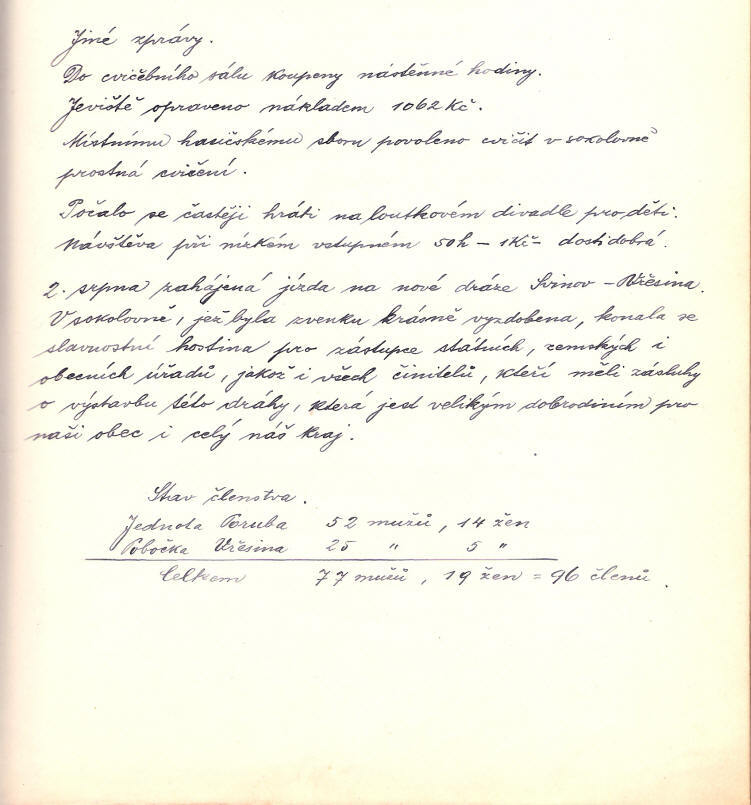 Jiné zprávy.
Do cvičebního sálu koupeny nástěnné hodiny.
Jeviště opraveno nákladem 1062 Kč.
Místnímu hasičskému sboru povoleno cvičit v sokolovně
prostná cvičení.
Počalo se častěji hráti na loutkovém divadle pro děti.
Návštěva při nízkém vstupném 50h – 1Kč – dosti dobrá.
2. srpna zahájená jízda na nové dráze Svinov – Vřesina.
V sokolovně, jež byla zvenku krásně vyzdobena, konala se
slavnostní hostina pro zástupce státních, zemských i
obecních úřadů, jakož i všech činitelů, kteří měli zásluhy
o výstavbu této dráhy, která jest velikým dobrodiním pro
naši obec i celý náš kraj.
Stav členstva.
Jednota Poruba 52 mužů, 14 žen
Pobočka Vřesina 25 " 5 "
Celkem 77 mužů, 19 žen = 96 členů.